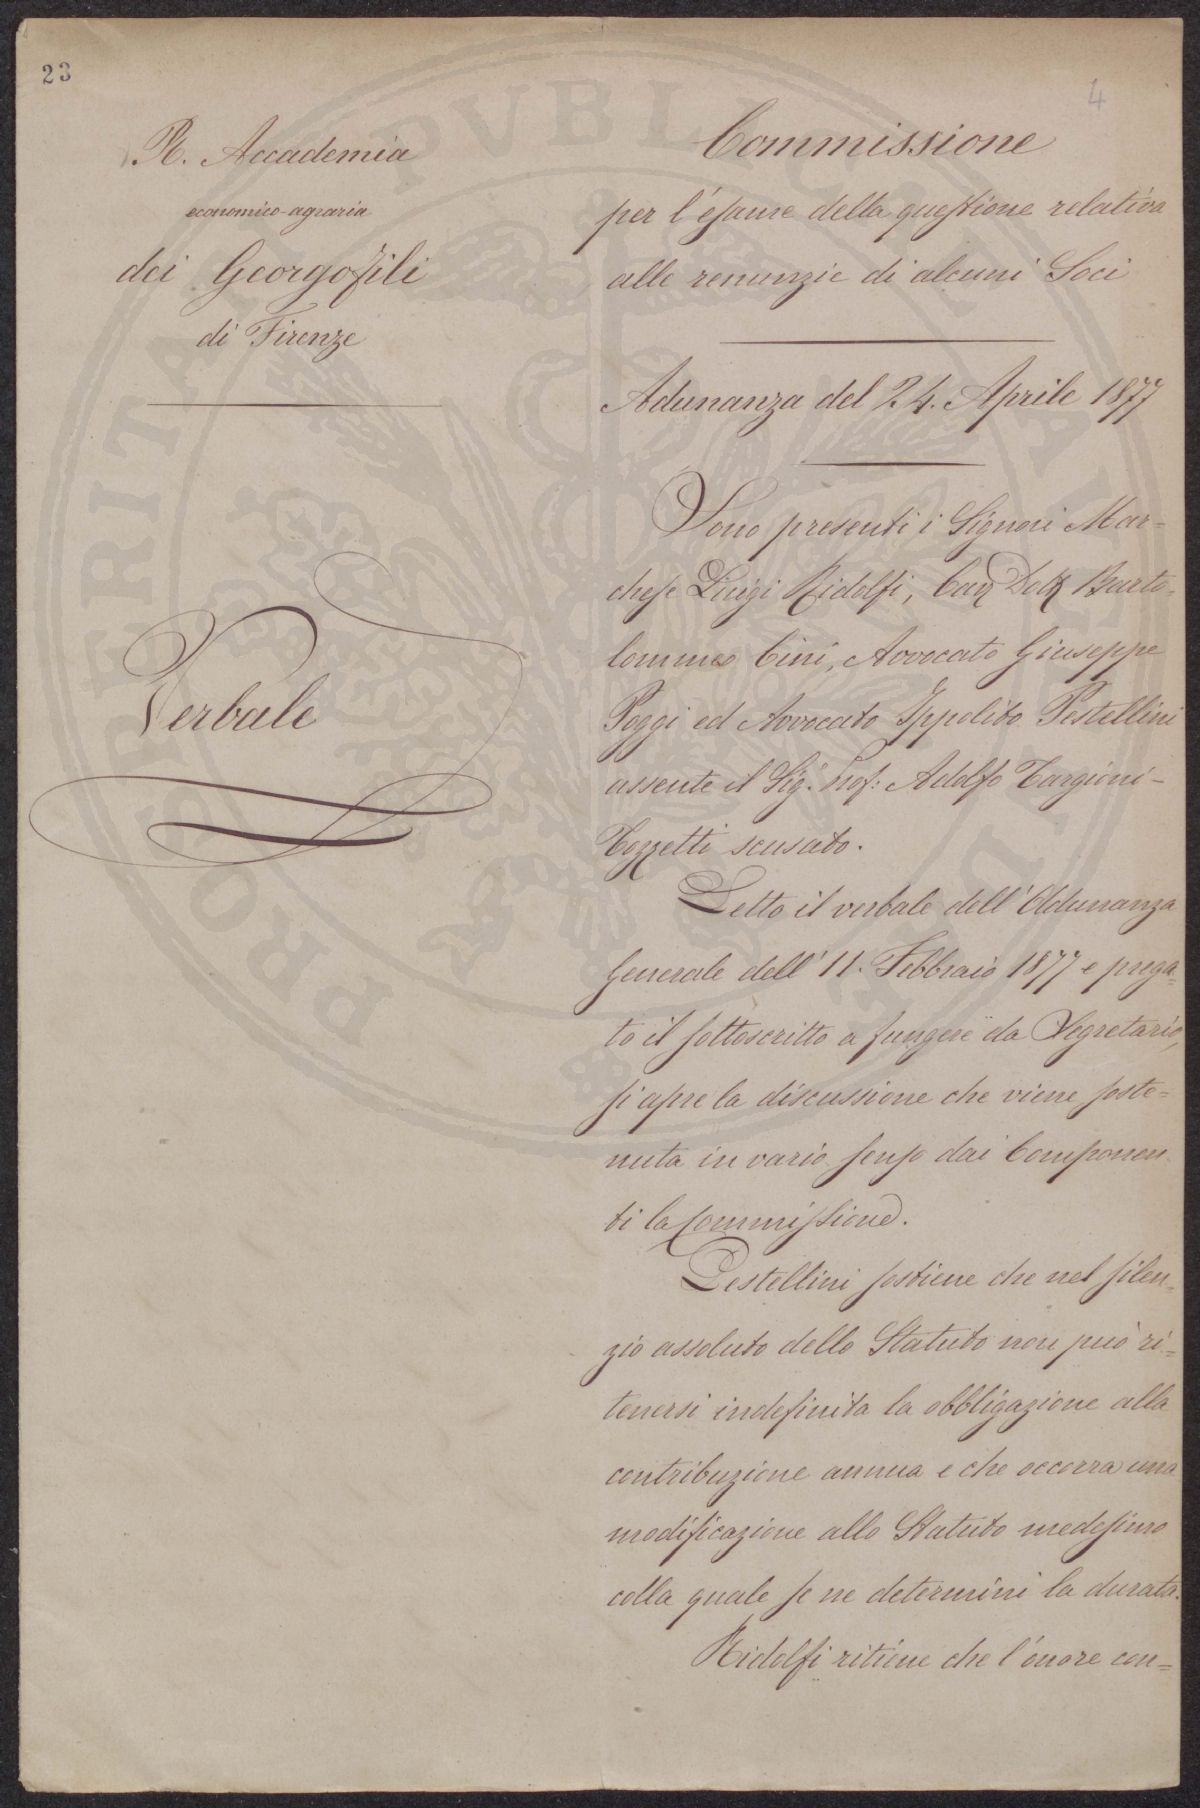 23
4
R. Accademia
economico-agraria
dei Georgofili
di Firenze
Verbale
Commissione
per l'esame della questione relativa
alle renunzie di alcuni Soci
Adunanza del 24. Aprile 1877
Sono presenti i Signori Mar=
chese Luigi Ridolfi, Cav Dott Barto=
lommeo Cini, Avvocato Giuseppe
Poggi ed Avvocato Ippolito Pestellini
assente il Sig. Prof: Adolfo Targioni-
Tozzetti scusato.
Letto il verbale dell'Adunanza
Generale dell'11. Febbraio 1877 e prega=
to il sottoscritto a fungere da Segretario,
si apre la discussione che viene soste=
nuta in vario senso dai Componen=
ti la Commissione.
Pestellini sostiene che nel silen=
zio assoluto dello Statuto non può ri=
tenersi indefinita la obbligazione alla
contribuzione annua e che occorra una
modificazione allo Statuto medesimo
colla quale se ne determini la durata.
Ridolfi ritiene che l'onore con=
PROSPERITATI PUBLICAE AUGENDAE